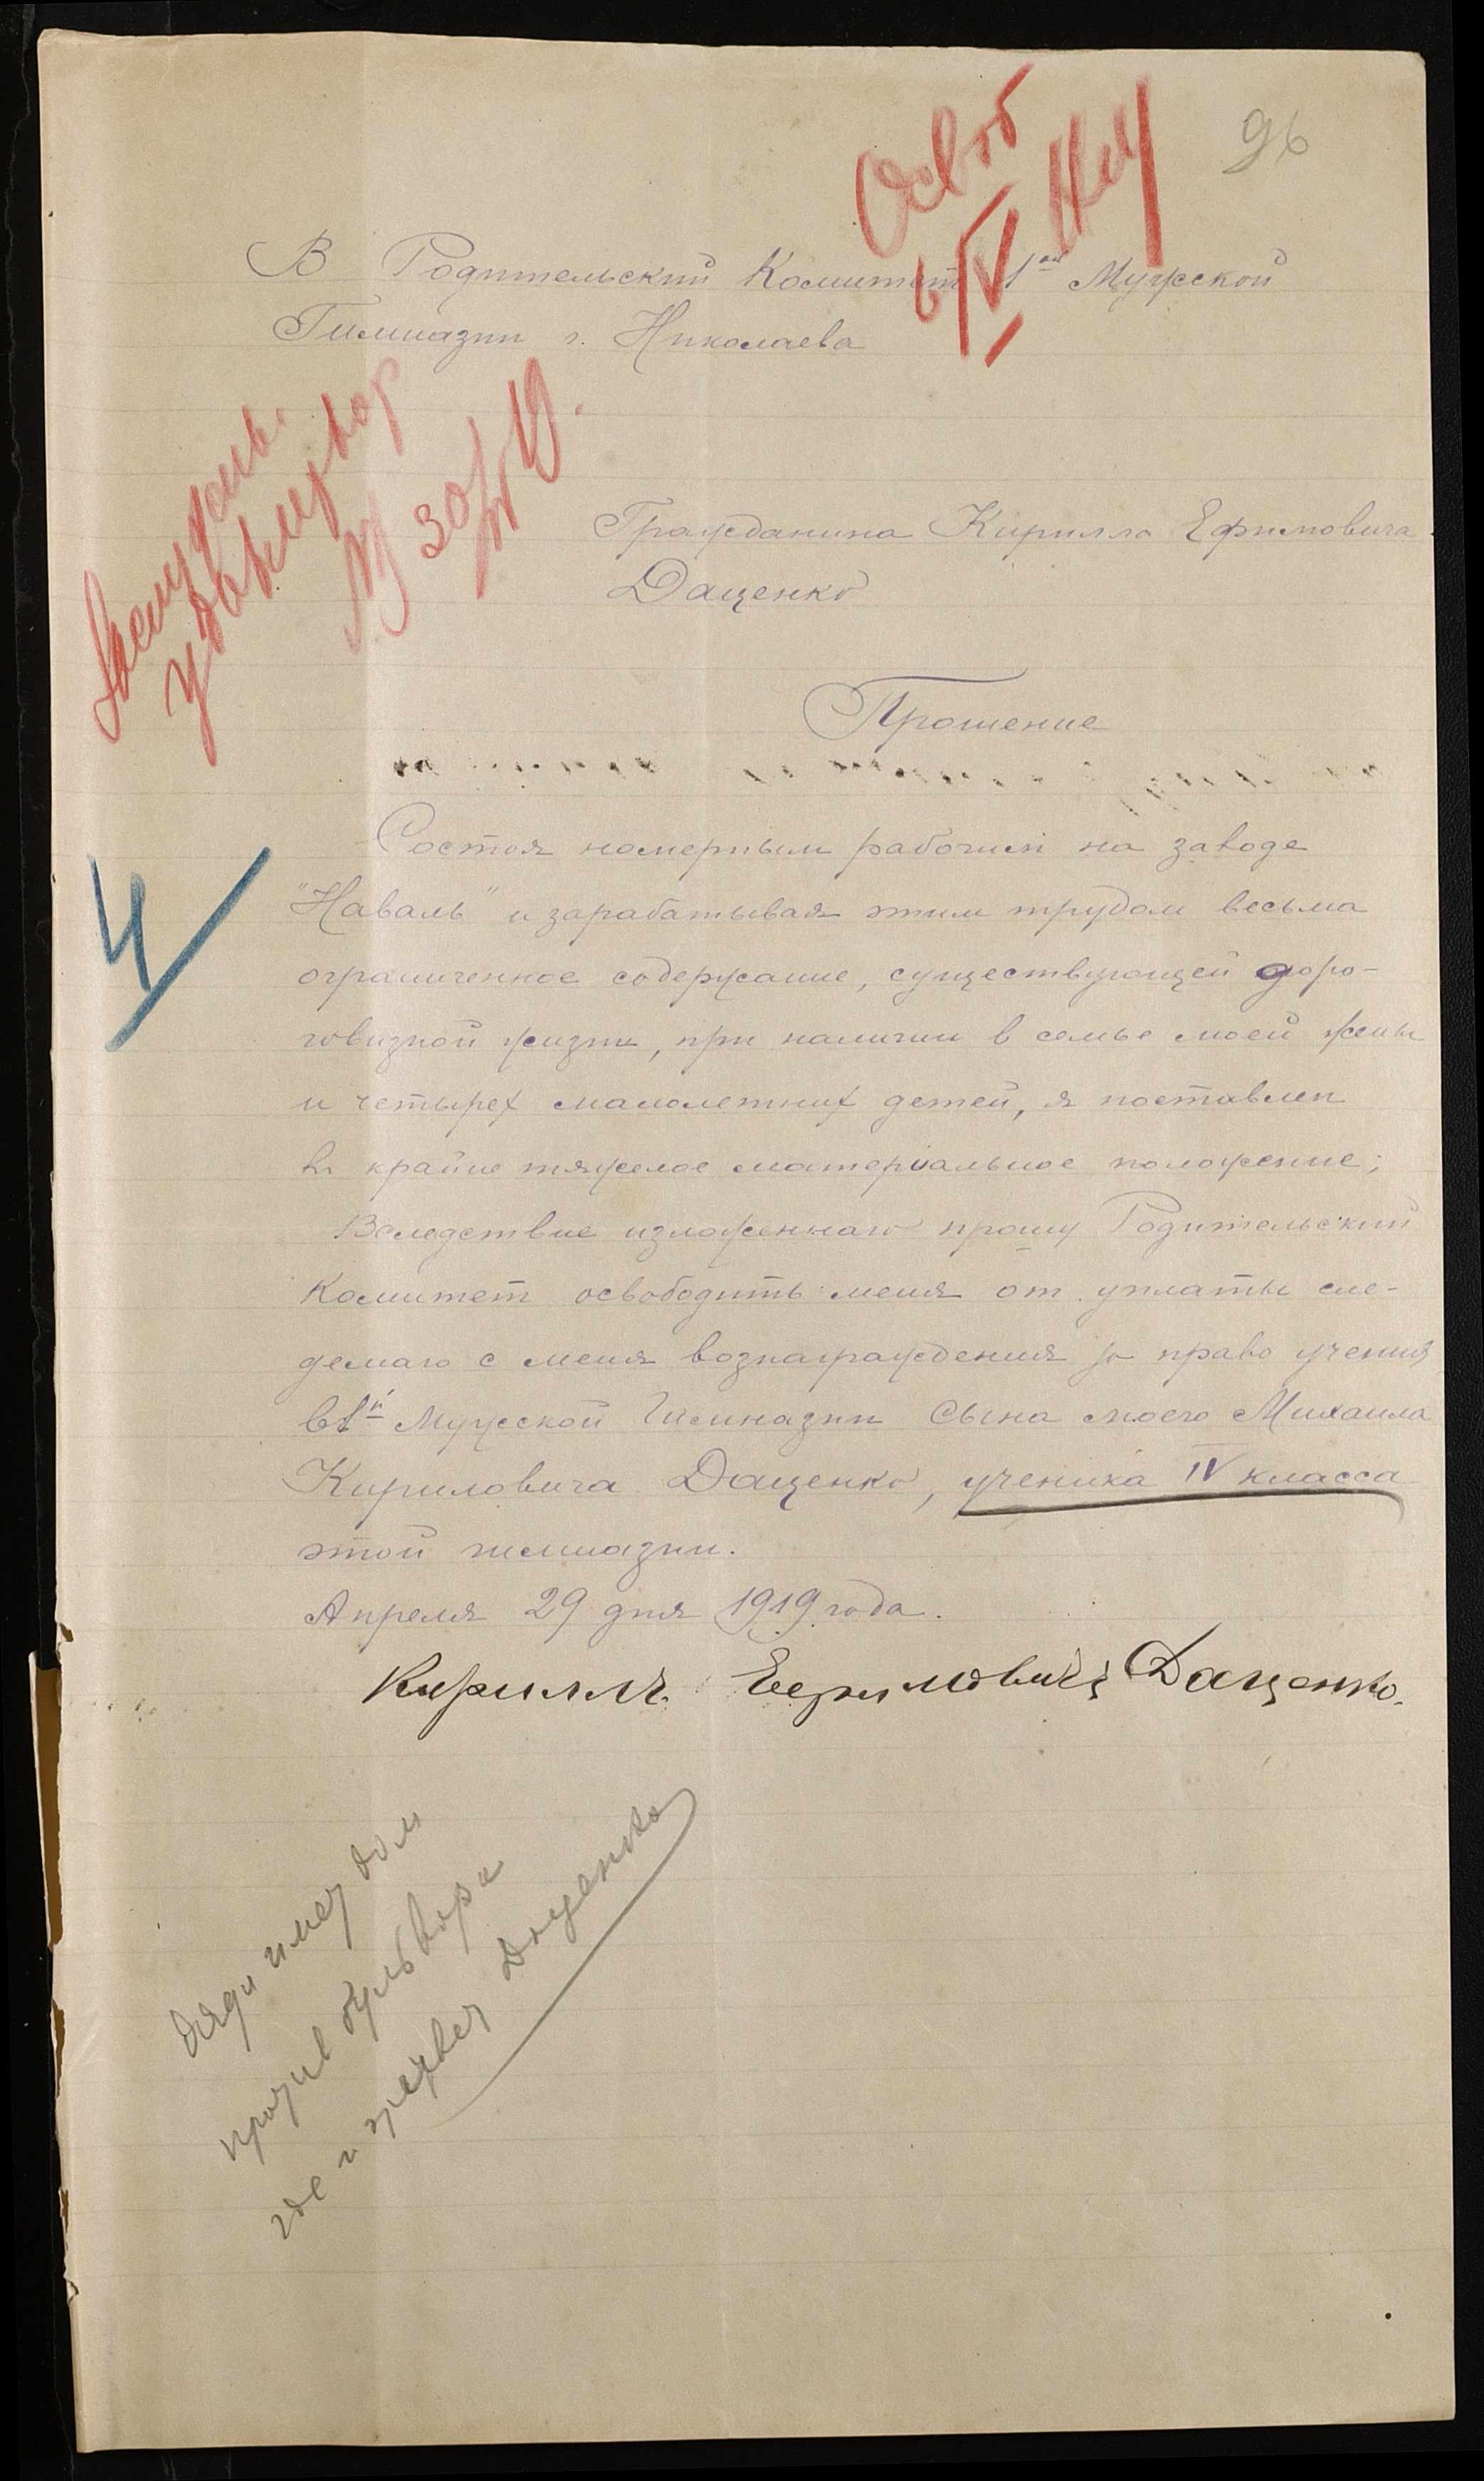 96
Освоб
6/V
В Родительский Комитет 1ой Мужской
Гимназии г. Николаева
30/IV 19.
Гражданина Кирилла Ефимовича
Даценко
Прошение
Состоя номерным рабочим на заводе
"Наваль" и зарабатывая этим трудом весьма
ограниченное содержание, существующей доро-
говизной жизни, при наличии в семье моей жены
и четырех малолетних детей, я поставлен
в крайне тяжелое матеріальное положение;
Вследствие изложеннаго прошу Родительский
Комитет освободить меня от уплаты сле-
демаго с меня вознаграждения за право учения
в 1й Мужской Гимназии Сына моего Михаила
Кириловича Даценко, ученика IV класса
этой гимназии.
Апреля 29 дня 1919 года.
Кириллъ Ефимовичъ Даценко.
4
дядя имеет дом
против бульвара
где и живет Доценко